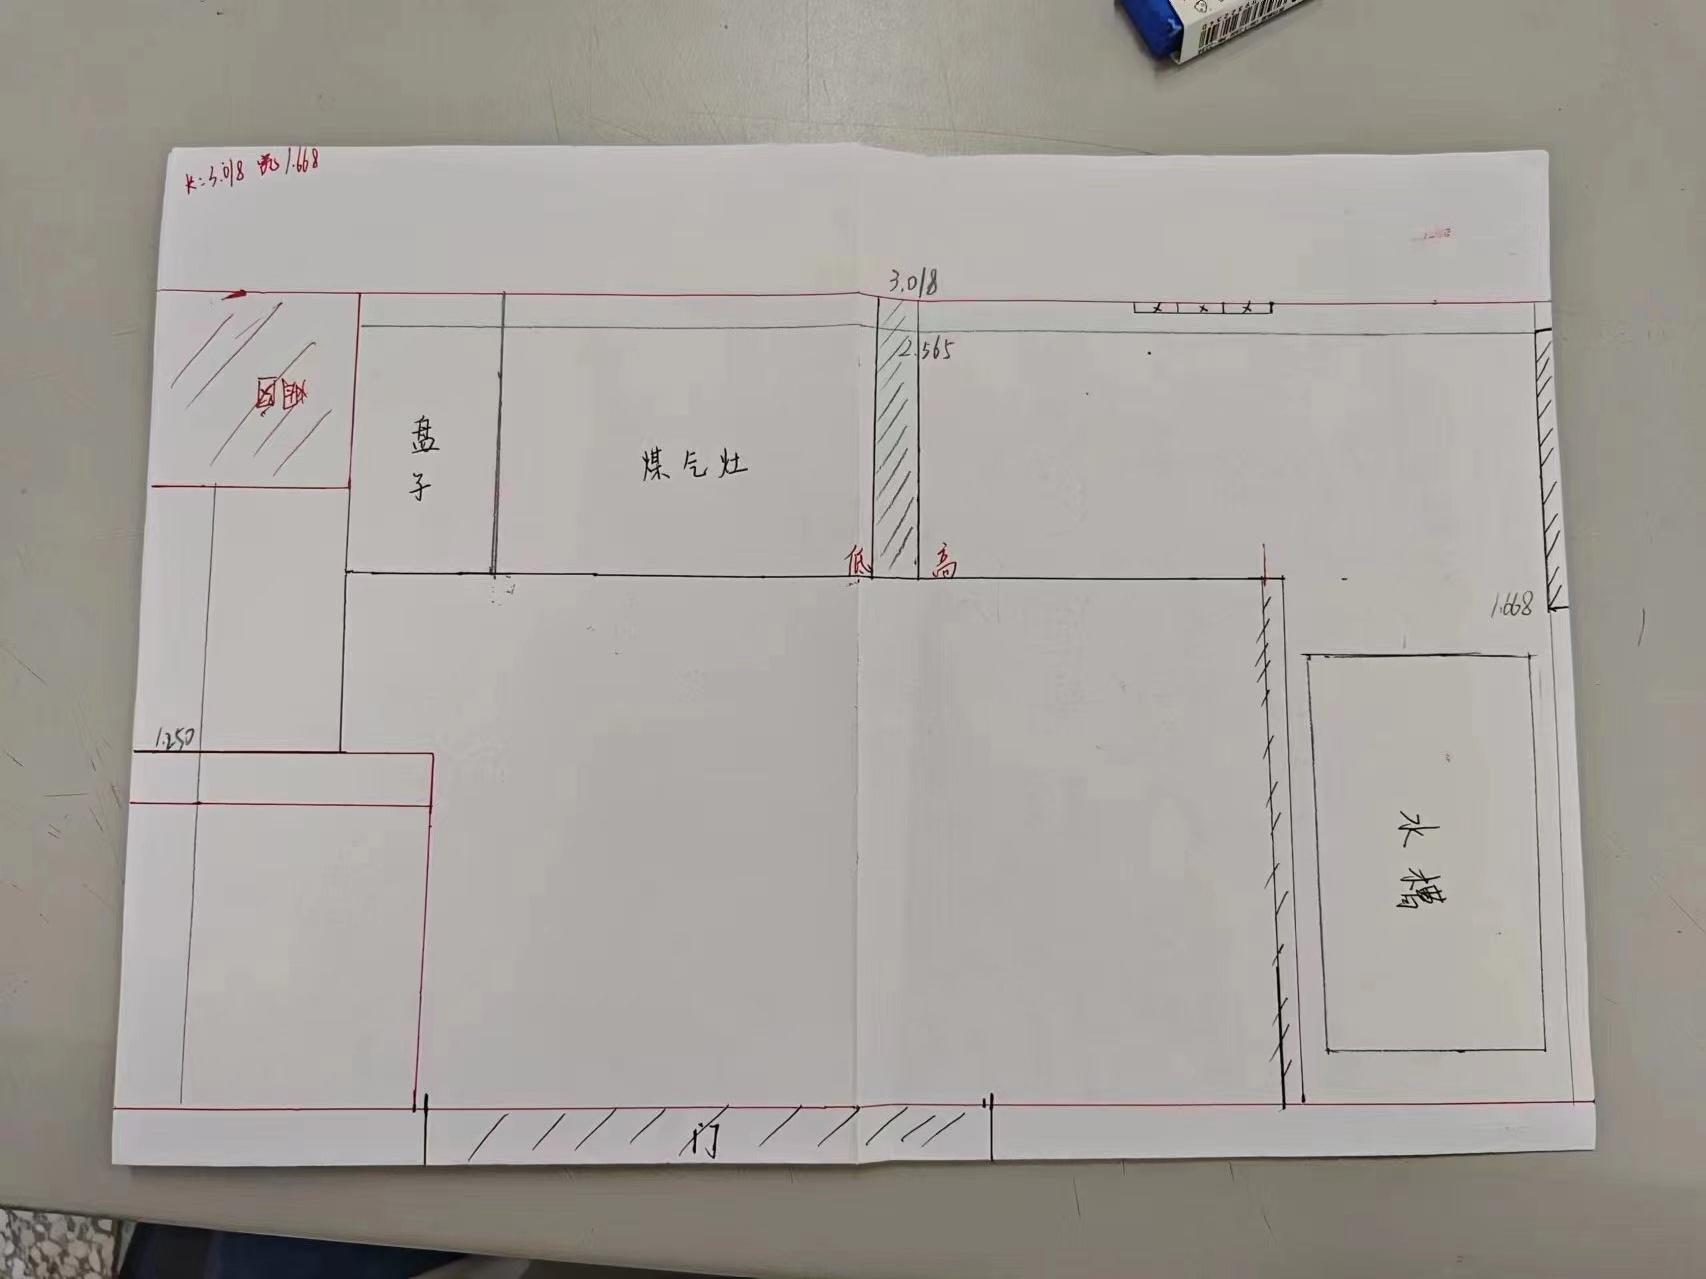 长:3.018 宽1.668
3.018
2.565
盘子
煤气灶
低
高
1.668
1.250
水槽
门